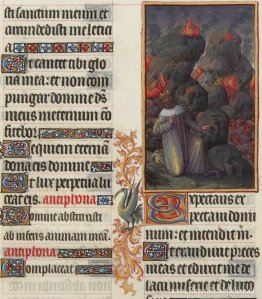 sti sanctum meum et
circumdedisti me letici
a
Et cantet tibi glo
ria mea: et non com
pungar domine ds
meus in eternum con
fitebor tibi
Requiem eternā
dona eis domine
Et lux perpetua lu
ceat eis. antiphona
Domine abstraxisti
ab inferis animam meam.
antiphona
Complaceat
Expectans ex
pectavi domi
num: et intendit m
Et exaudivit preces
meas et eduxit me de
lacu miserie et de luto